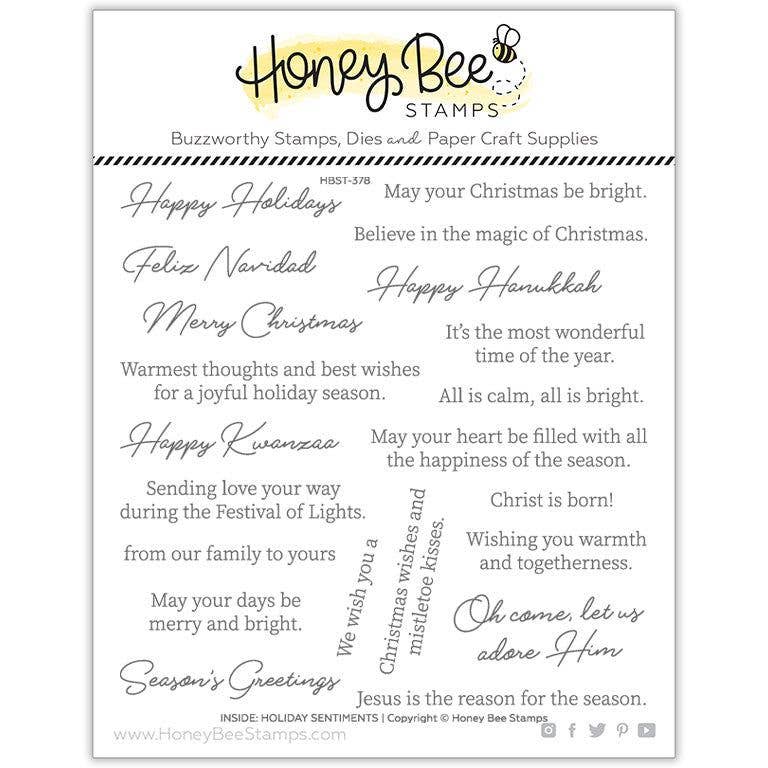 Honey Bee
STAMPS
Buzzworthy Stamps, Dies and Paper Craft Supplies
HBST-378
Happy Holidays
May your Christmas be bright.
Believe in the magic of Christmas.
Feliz Navidad
Happy Hanukkah
Merry Christmas
It's the most wonderful
time of the year.
Warmest thoughts and best wishes
for a joyful holiday season.
All is calm, all is bright.
Happy Kwanzaa
May your heart be filled with all
the happiness of the season.
Sending love your way
during the Festival of Lights.
Christ is born!
from our family to yours
We wish you a
Christmas wishes and
mistletoe kisses.
Wishing you warmth
and togetherness.
May your days be
merry and bright.
Oh come, let us
adore Him
Season's Greetings
Jesus is the reason for the season.
INSIDE: HOLIDAY SENTIMENTS | Copyright © Honey Bee Stamps
www.HoneyBeeStamps.com